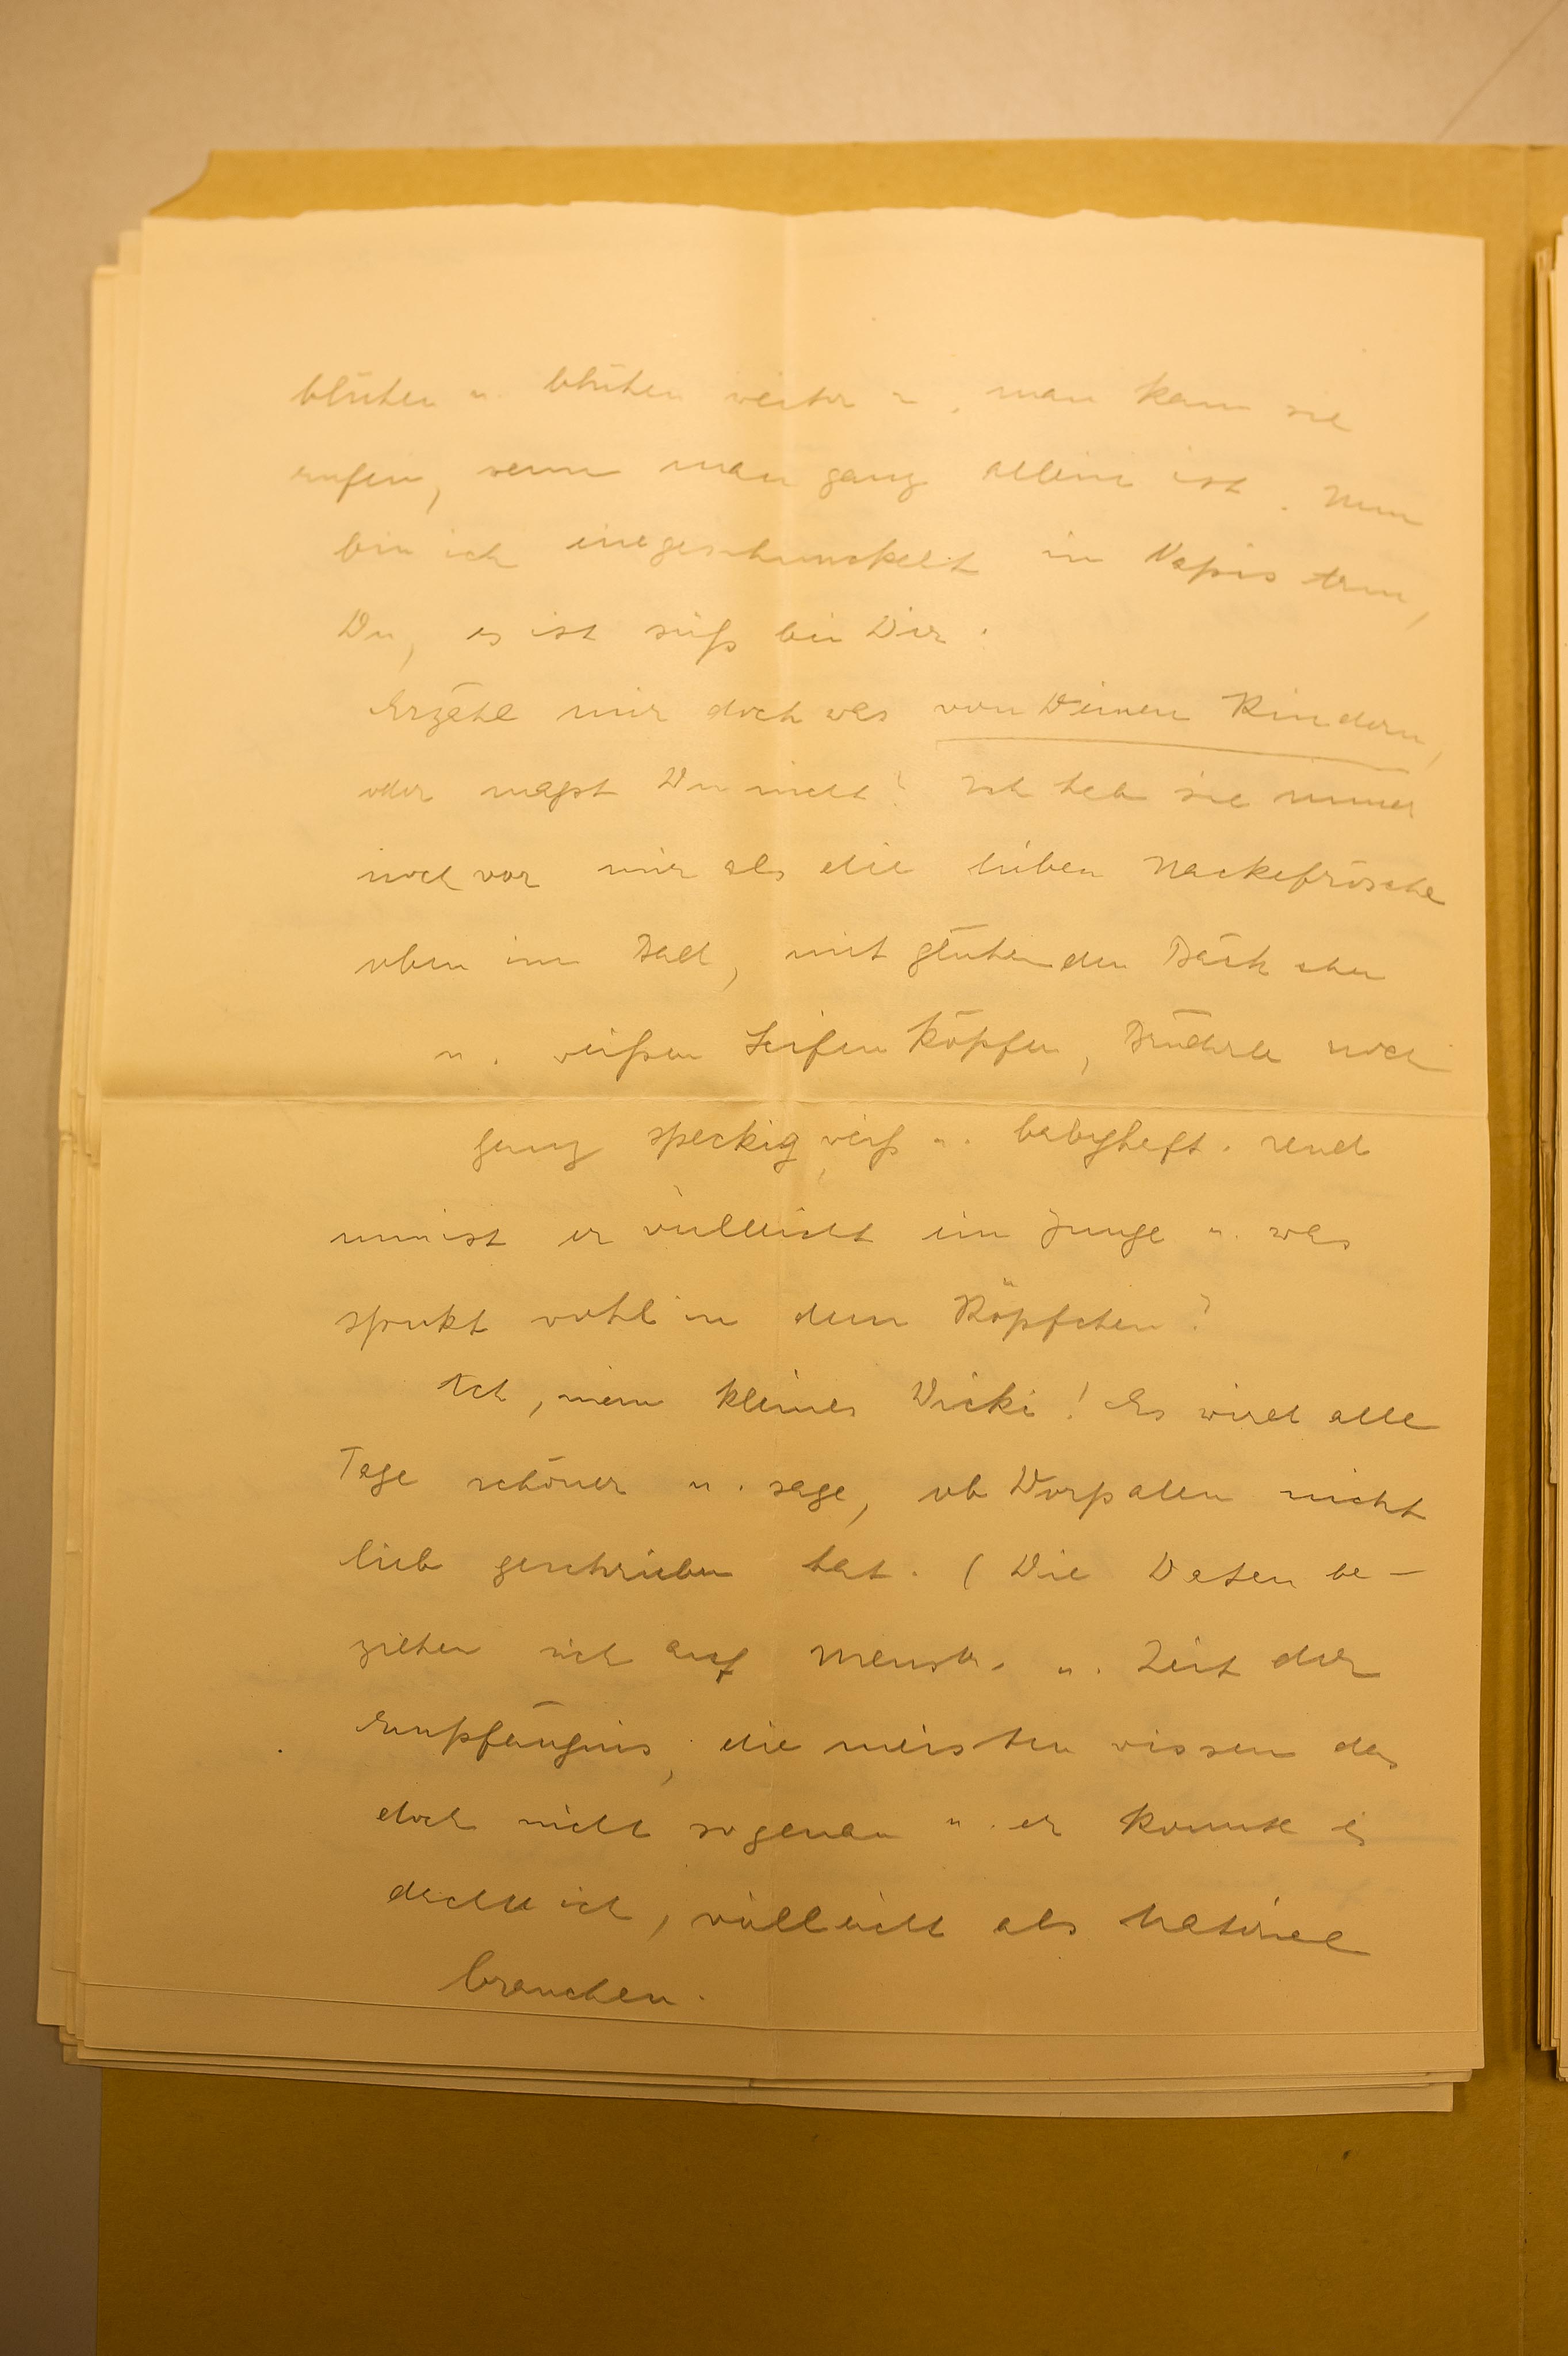 blühen u. blühen weiter u. man kann sie
rufen, wenn man ganz allein ist. Nun
bin ich eingeschunckelt in Vapis Arm,
Du, es ist süß bei Dir.
Erzähl mir doch was von Deinen Kindern,
oder magst Du nicht? Ich hab sie immer
noch vor mir als die lieben Nackefrösche
oben im Bad, mit glühenden Bäckchen
u. weißen Seifenköpfen, Brüderle noch
ganz speckig, weiß u. babyhaft. Und
nun ist er vielleicht ein Junge u. was
spukt wohl in dem Köpfchen?
Ach, mein kleines Vicki! Es wird alle
Tage schöner u. sage, ob Dorpalen nicht
lieb geschrieben hat. (Die Daten be-
ziehen sich auf Menstr. u. Zeit der
Empfängnis, die meisten wissen das
doch nicht so genau u. er konnte es
dachte ich, vielleicht als Material
brauchen.